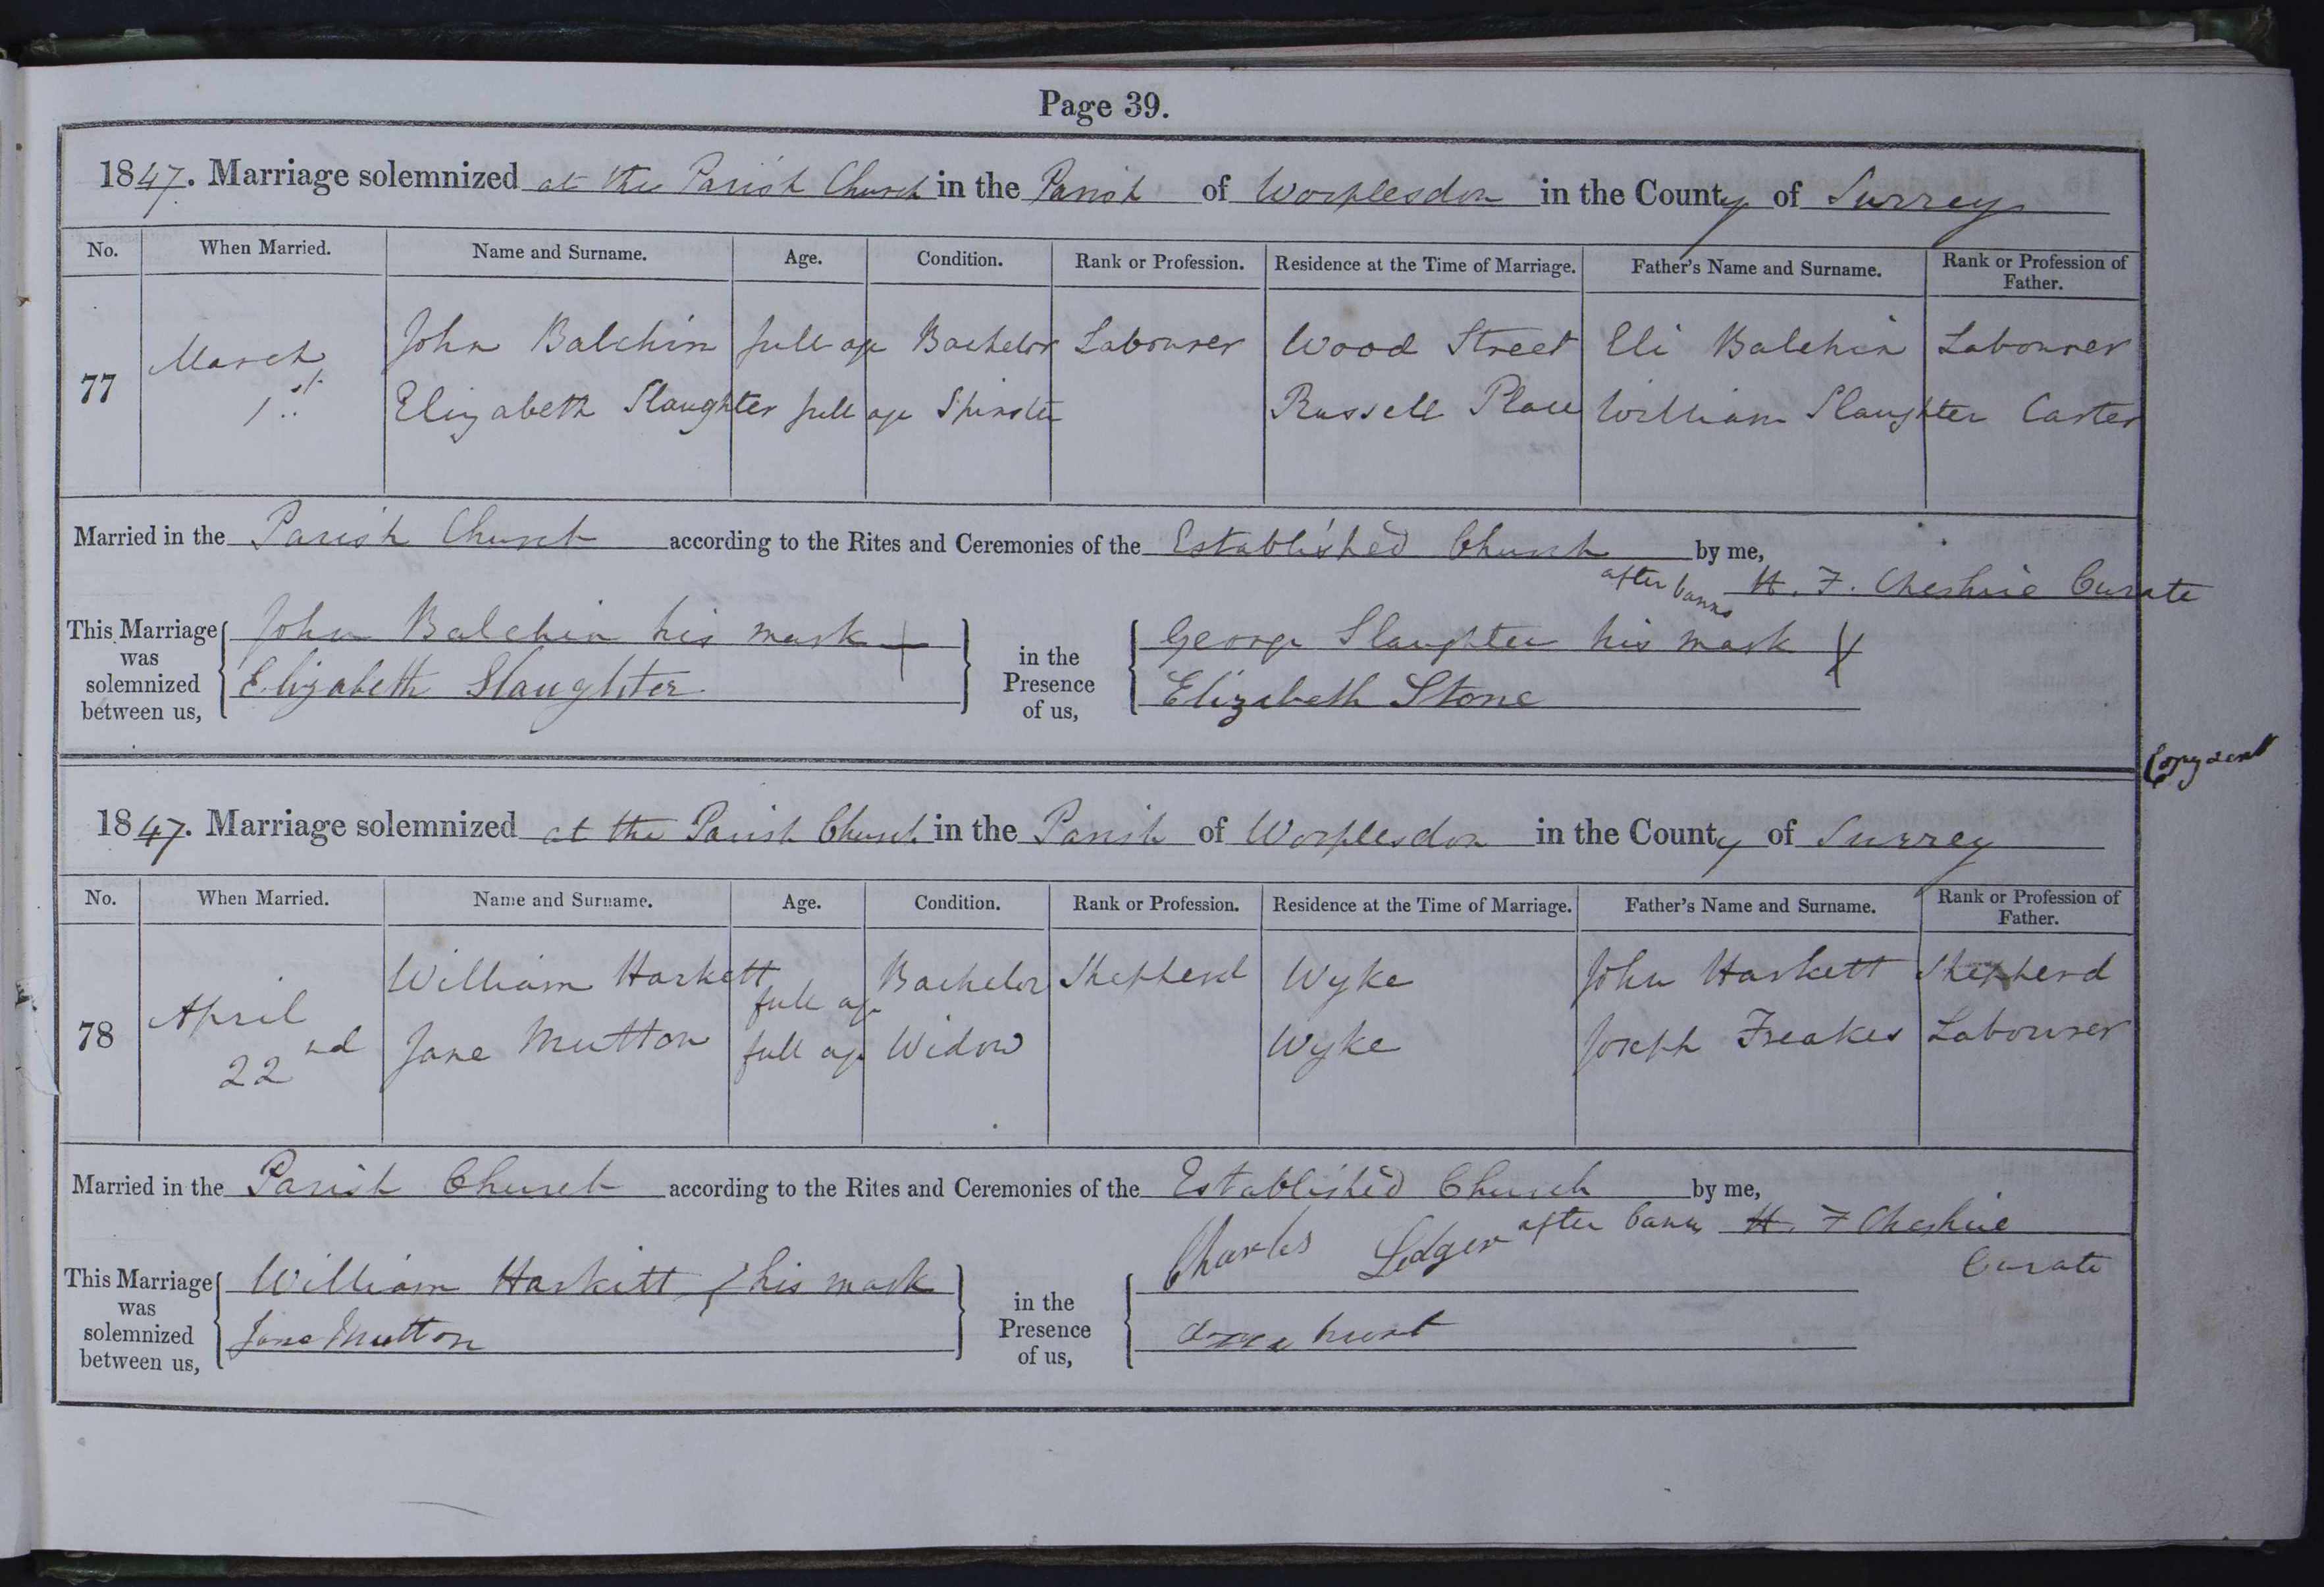 Page 39.
1847. Marriage solemnized at the Parish Church in the Parish of Worplesdon in the County of Surrey
No. When Married. Name and Surname. Age. Condition. Rank or Profession. Residence at the Time of Marriage. Father's Name and Surname. Rank or Profession of Father.
77 March 1st John Balchin full age Bachelor Labourer Wood Street Eli Balchin Labourer
Elizabeth Slaughter full age Spinster Russell Place William Slaughter Carter
Married in the Parish Church according to the Rites and Ceremonies of the Established Church by me,
after banns H. F. Cheshire Curate
This Marriage was solemnized between us, John Balchin his mark + in the Presence of us, George Slaughter his mark X
Elizabeth Slaughter Elizabeth Stone
Copy sent
1847. Marriage solemnized at the Parish Church in the Parish of Worplesdon in the County of Surrey
No. When Married. Name and Surname. Age. Condition. Rank or Profession. Residence at the Time of Marriage. Father's Name and Surname. Rank or Profession of Father.
78 April 22nd William Harkett full age Bachelor Shepherd Wyke John Harkett Shepherd
Jane Mutton full age Widow Wyke Joseph Freakes Labourer
Married in the Parish Church according to the Rites and Ceremonies of the Established Church by me,
after banns H. F Cheshire
Curate
This Marriage was solemnized between us, William Harkitt his mark in the Presence of us, Charles Ledger
Jane Mutton